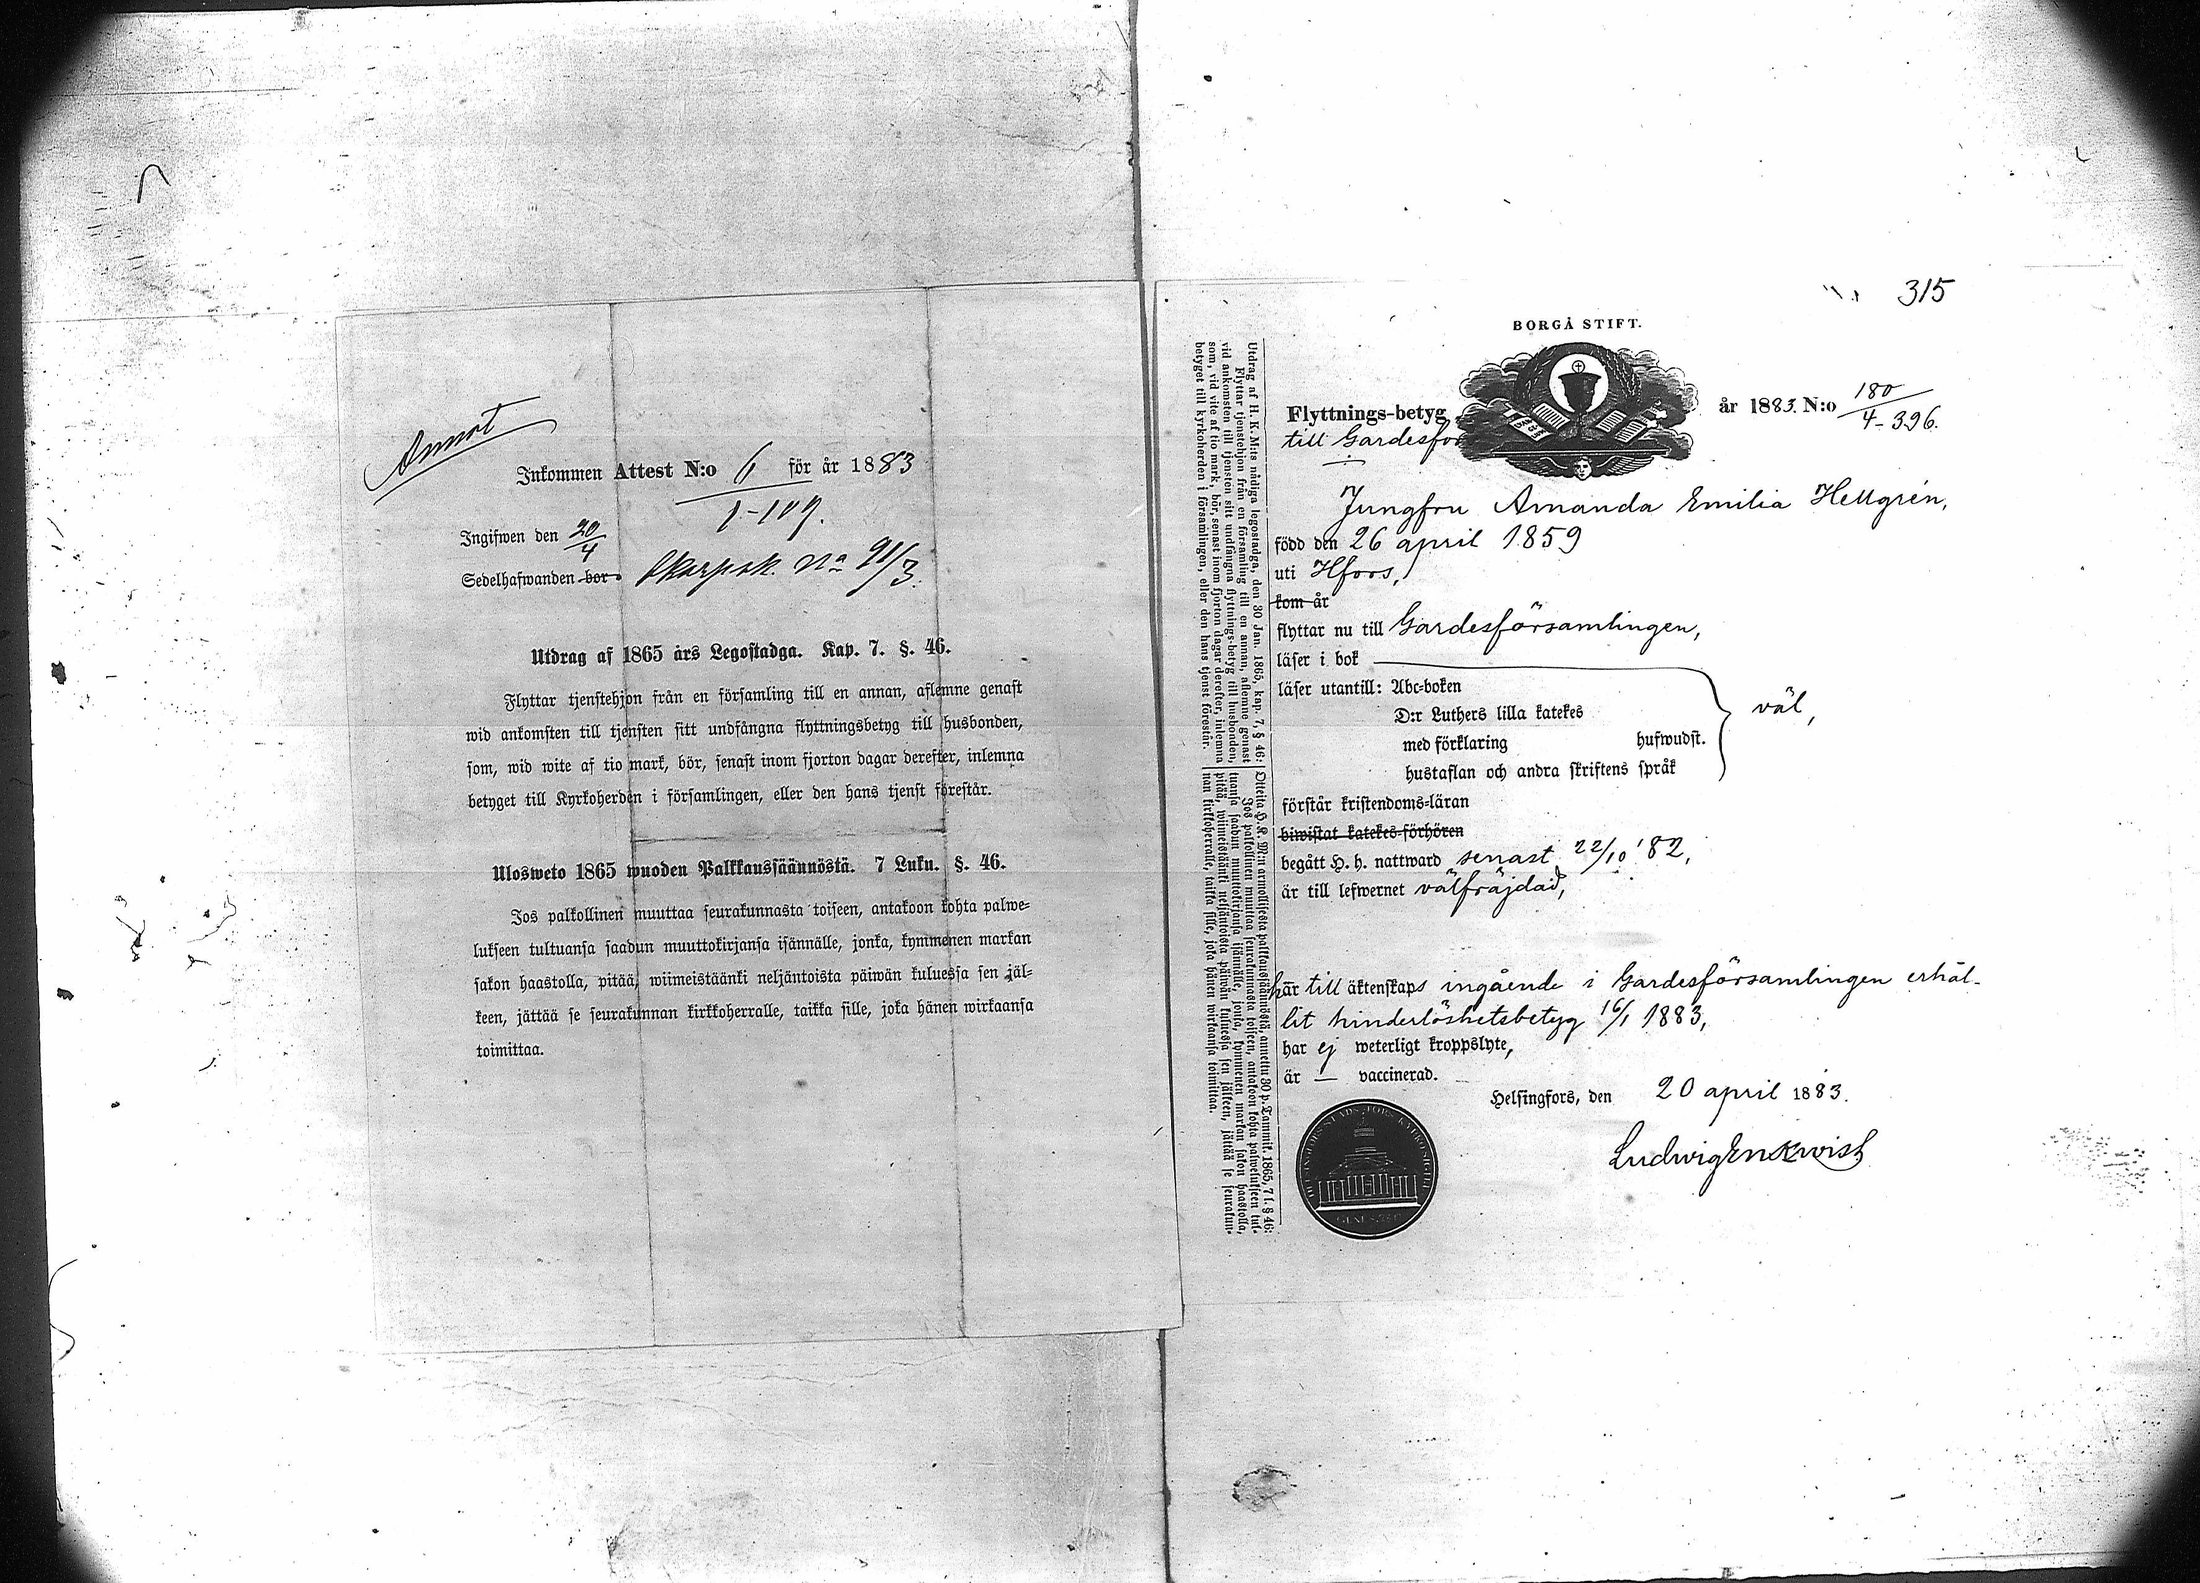 Annot
Inkommen Attest N:o 6 för år 1883
1-109.
Ingifwen den 20/4
Sedelhafwanden bor Skarpsk. No 91/3.
Utdrag af 1865 års Legostadga. Kap. 7. §. 46.
Flyttar tjenstehjon från en församling till en annan, aflemne genast
wid ankomsten till tjensten sitt undfångna flyttningsbetyg till husbonden,
som, wid wite af tio mark, bör, senast inom fjorton dagar derefter, inlemna
betyget till Kyrkoherden i församlingen, eller den hans tjenst förestår.
Ulosweto 1865 wuoden Palkkaussäännöstä. 7 Luku. §. 46.
Jos palkollinen muuttaa seurakunnasta toiseen, antakoon kohta palwe-
lukseen tultuansa saadun muuttokirjansa isännälle, jonka, kymmenen markan
sakon haastolla, pitää, wiimeistäänki neljäntoista päiwän kuluessa sen jäl-
keen, jättää se seurakunnan kirkkoherralle, taikka sille, joka hänen wirkaansa
toimittaa.
315
BORGÅ STIFT.
Flyttnings-betyg år 1883. N:o 180/4-396.
till Gardesför
Jungfru Amanda Emilia Hellgrén,
född den 26 april 1859
uti Hfors,
kom år
flyttar nu till Gardesförsamlingen,
läser i bok
läser utantill: Abc-boken
D:r Luthers lilla katekes väl,
med förklaring hufwudst.
hustaflan och andra skriftens språk
förstår kristendoms-läran
biwistat katekes-förhören
begått H. h. nattward senast 22/10 '82,
är till lefwernet välfräjdad,
här till äktenskaps ingående i Gardesförsamlingen erhål-
lit hinderlöshetsbetyg 16/1 1883,
har ej weterligt kroppslyte,
är — vaccinerad.
Helsingfors, den 20 april 1883.
Ludwig Enkwist
Utdrag af H. K. M:ts nådiga legostadga, den 30 Jan. 1865, kap. 7, § 46:
Flyttar tjenstehjon från en församling till en annan, aflemne genast
vid ankomsten till tjensten sitt undfångna flyttnings-betyg till husbonden,
som, vid vite af tio mark, bör, senast inom fjorton dagar derefter, inlemna
betyget till kyrkoherden i församlingen, eller den hans tjenst förestår.
Otteita H. K. M:n armollisesta palkkaussäännöstä, annettu 30 p. Tammik. 1865, 7 l. § 46:
Jos palkollinen muuttaa seurakunnasta toiseen, antakoon kohta palwelukseen tul-
tuansa saadun muuttokirjansa isännälle, jonka, kymmenen markan sakon haastolla,
pitää, wiimeistäänki neljäntoista päiwän kuluessa sen jälkeen, jättää se seurakun-
nan kirkkoherralle, taikka sille, joka hänen wirkaansa toimittaa.